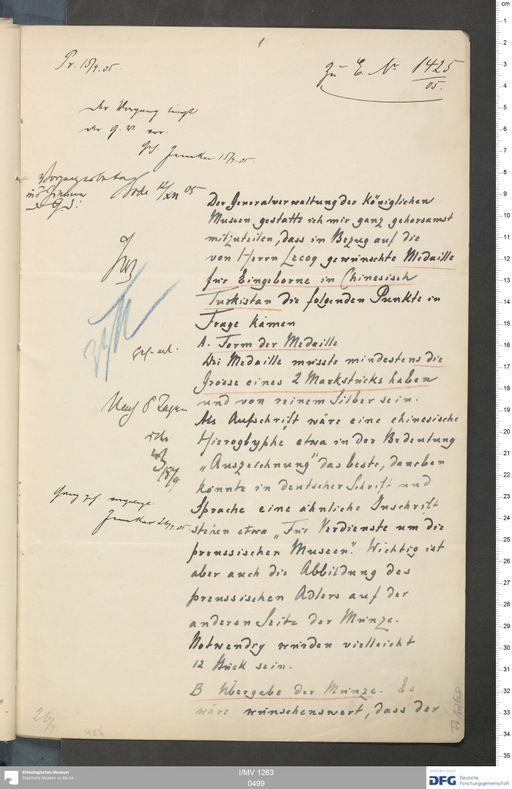 Pr. 15/9. 05.
zu E. Nr 1425/05.
der Vorgang liegt
der G. V. vor.
Junker 15/9. 05.
12/XII 05
Der Generalverwaltung der Königlichen
Museen gestatte ich mir ganz gehorsamst
mitzuteilen, dass in Bezug auf die
von Herrn Lecoq gewünschte Medaille
für Eingeborne in Chinesisch
Turkistan die folgenden Punkte in
Frage kämen
A. Form der Medaille
Die Medaille müsste mindestens die
Grösse eines 2 Markstücks haben
und von reinem Silber sein.
Als Aufschrift wäre eine chinesische
Hieroglyphe etwa in der Bedeutung
„Auszeichnung" das beste, daneben
könnte in deutscher Schrift und
Sprache eine ähnliche Inschrift
stehen etwa „Für Verdienste um die
preussischen Museen". Wichtig ist
aber auch die Abbildung des
preussischen Adlers auf der
anderen Seite der Münze.
Notwendig würden vielleicht
12 Stück sein.
B Übergabe der Münze. Es
wäre wünschenswert, dass der
Nach 8 Tagen
Junker
Ethnologisches Museum
Staatliche Museen zu Berlin
I/MV 1263
0499
DFG Deutsche
Forschungsgemeinschaft